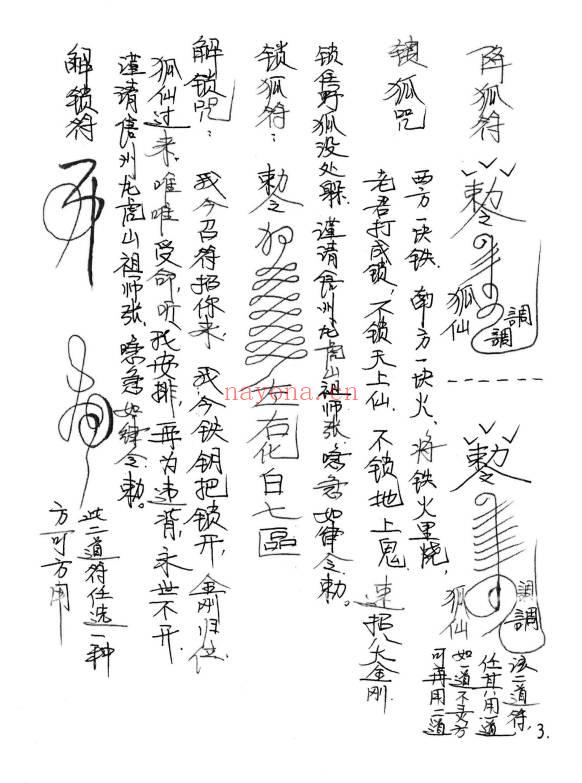 降狐符
勅令
狐仙
調調
勅令
狐仙
調調
注二道符,
任其用一道
如一道不灵方
可再用二道
锁狐咒
西方一块铁. 南方一块火, 将铁火里烧,
老君打成锁, 不锁天上仙. 不锁地上鬼. 速招八大金刚.
锁住野狐没处躲. 谨请信州龙虎山祖师张. 嗪急如律令.勅。
锁狐符:
勅令
左右化白七
解锁咒:
我今召符招你来, 我今铁钥把锁开, 金刚归位.
狐仙过来, 唯唯受命, 听我安排, 再为违背, 永世不开.
谨请信州龙虎山祖师张. 嗪急如律令.勅。
解锁符
此二道符任选一种
方可方用
3.
nayona.cn